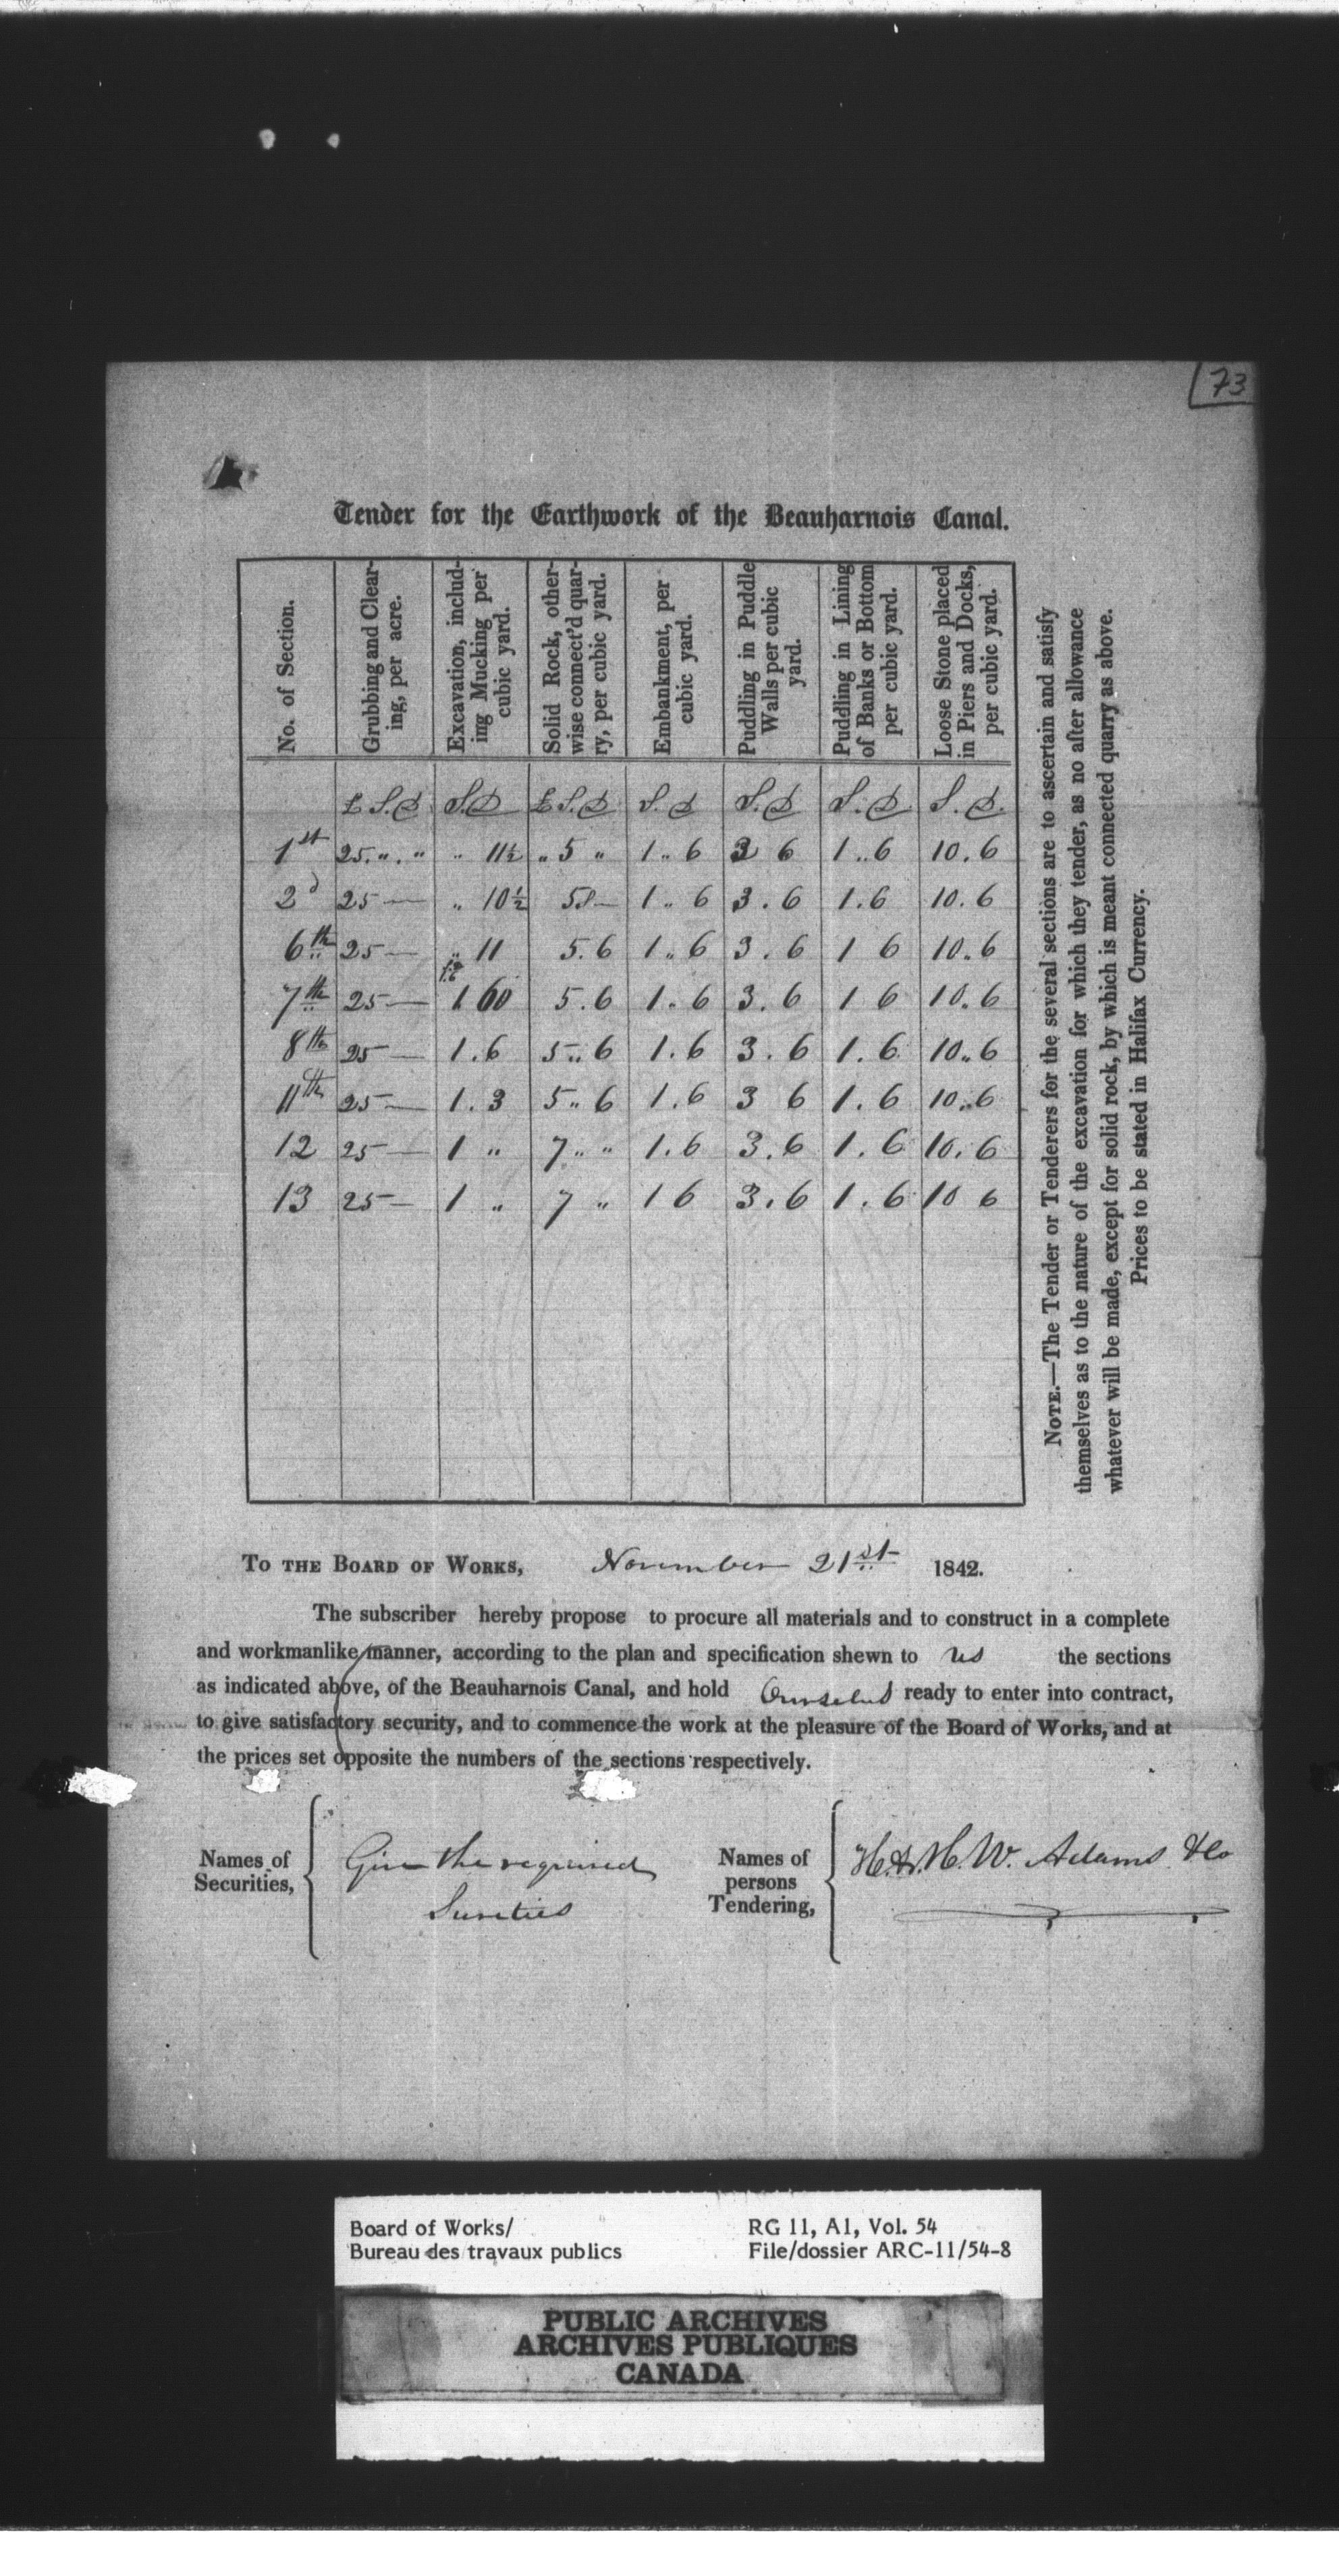 73
Tender for the Earthwork of the Beauharnois Canal.
No. of Section.
Grubbing and Clear-
ing, per acre.
Excavation, includ-
ing Mucking per
cubic yard.
Solid Rock, other-
wise connect'd quar-
ry, per cubic yard.
Embankment, per
cubic yard.
Puddling in Puddle
Walls per cubic
yard.
Puddling in Lining
of Banks or Bottom
per cubic yard.
Loose Stone placed
in Piers and Docks,
per cubic yard.
£ S. D S. D £ S. D S. D S. D S. D S. D.
1st 25 „ . „ „ 11½ „ 5 „ 1 „ 6 3 6 1 .. 6 10 . 6
2d 25 — „ 10½ 5 — 1 „ 6 3 . 6 1 . 6 10 . 6
6th 25 — „ 11 5. 6 1 „ 6 3 . 6 1 6 10 „ 6
7th 25 — 1 5 . 6 1 „ 6 3 . 6 1 6 10 . 6
8th 25 — 1 . 6 5 „ 6 1 . 6 3 . 6 1 . 6 10 „ 6
11th 25 — 1 . 3 5 „ 6 1 . 6 3 6 1 . 6 10 „ 6
12 25 — 1 „ 7 „ „ 1 . 6 3 . 6 1 . 6 10 . 6
13 25 — 1 „ 7 „ 1 6 3 . 6 1 . 6 10 6
NOTE.—The Tender or Tenderers for the several sections are to ascertain and satisfy
themselves as to the nature of the excavation for which they tender, as no after allowance
whatever will be made, except for solid rock, by which is meant connected quarry as above.
Prices to be stated in Halifax Currency.
TO THE BOARD OF WORKS, November 21st 1842.
The subscriber hereby propose to procure all materials and to construct in a complete
and workmanlike manner, according to the plan and specification shewn to us the sections
as indicated above, of the Beauharnois Canal, and hold Ourselves ready to enter into contract,
to give satisfactory security, and to commence the work at the pleasure of the Board of Works, and at
the prices set opposite the numbers of the sections respectively.
Names of
Securities,
Give the required
Sureties
Names of
persons
Tendering,
H. & H. W. Adams & Co
Board of Works/
Bureau des travaux publics
RG 11, A1, Vol. 54
File/dossier ARC-11/54-8
PUBLIC ARCHIVES
ARCHIVES PUBLIQUES
CANADA